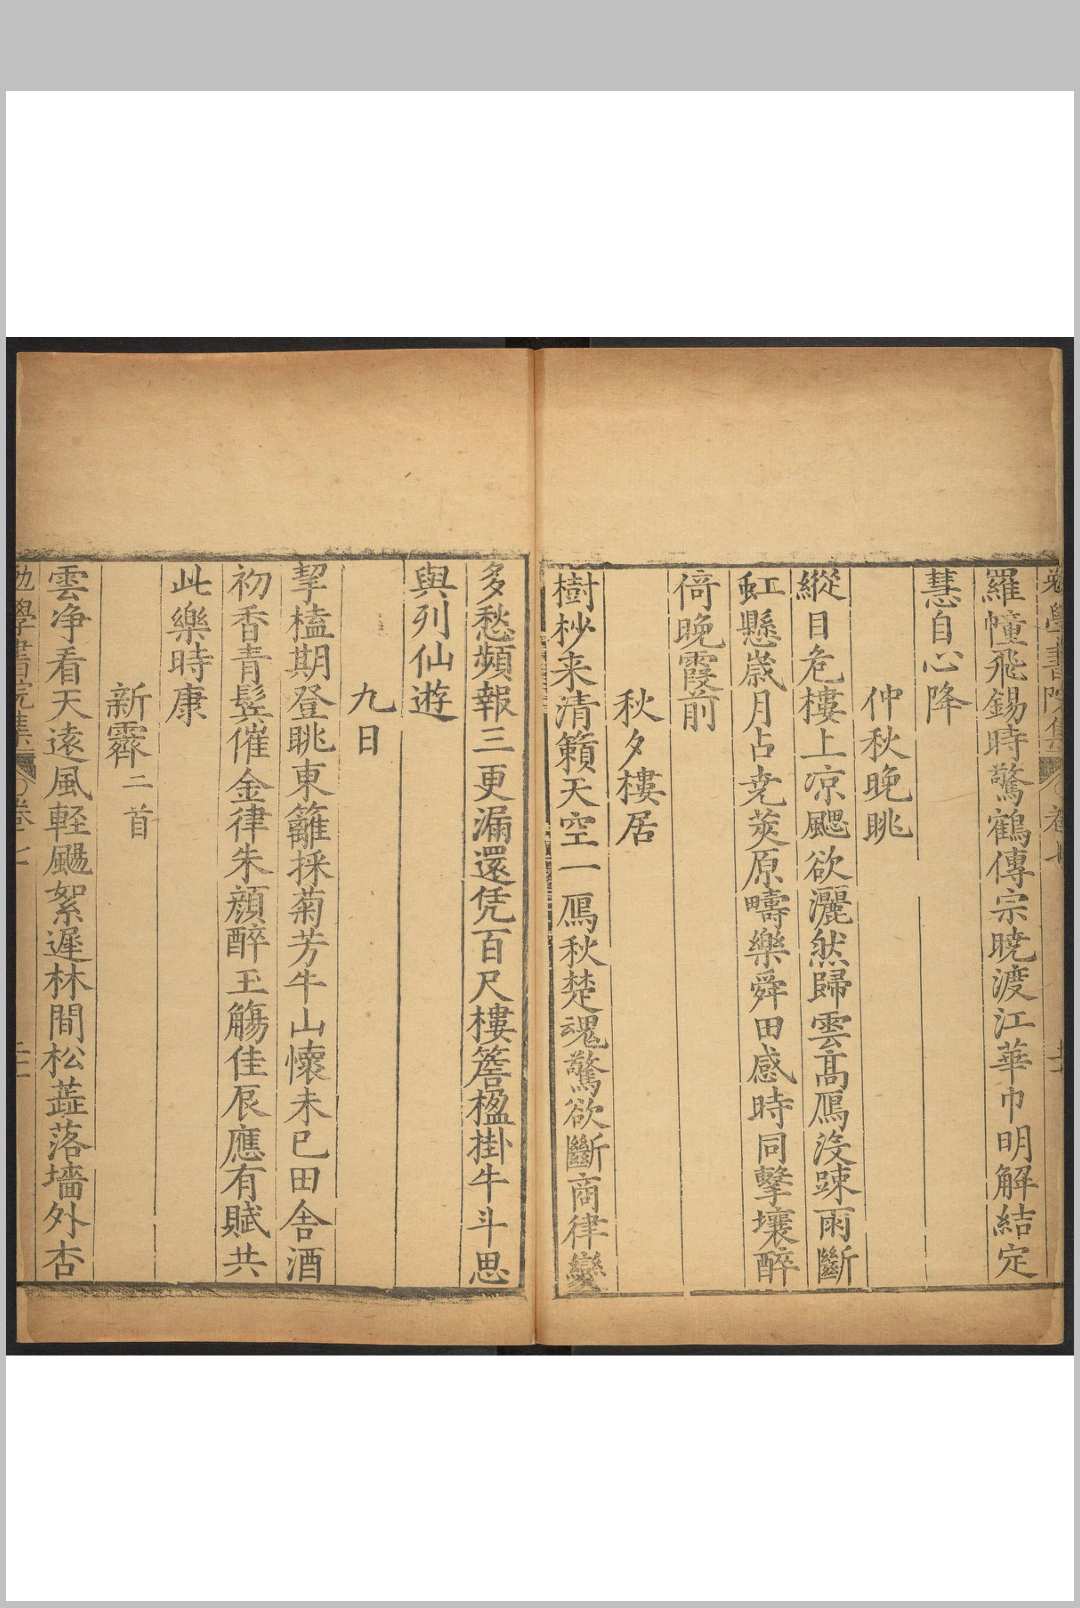 羅幢飛錫時驚鶴傳宗曉渡江華巾明解結定
慧自心降
仲秋晚眺
縱目危樓上凉颸欲灑然歸雲高鴈没踈雨斷
虹懸歲月占尭蓂原疇樂舜田感時同擊壤醉
倚晚霞前
秋夕樓居
樹杪来清籟天空一鴈秋楚魂驚欲斷商律變
多愁頻報三更漏還凭百尺樓簷楹掛牛斗思
與列仙遊
九日
挈榼期登眺東籬採菊芳牛山懷未已田舍酒
初香青鬂催金律朱顔醉玉觴佳辰應有賦共
此樂時康
新霽二首
雲净看天遠風輕颺絮遲林間松蘂落墻外杏
學書院集
卷七